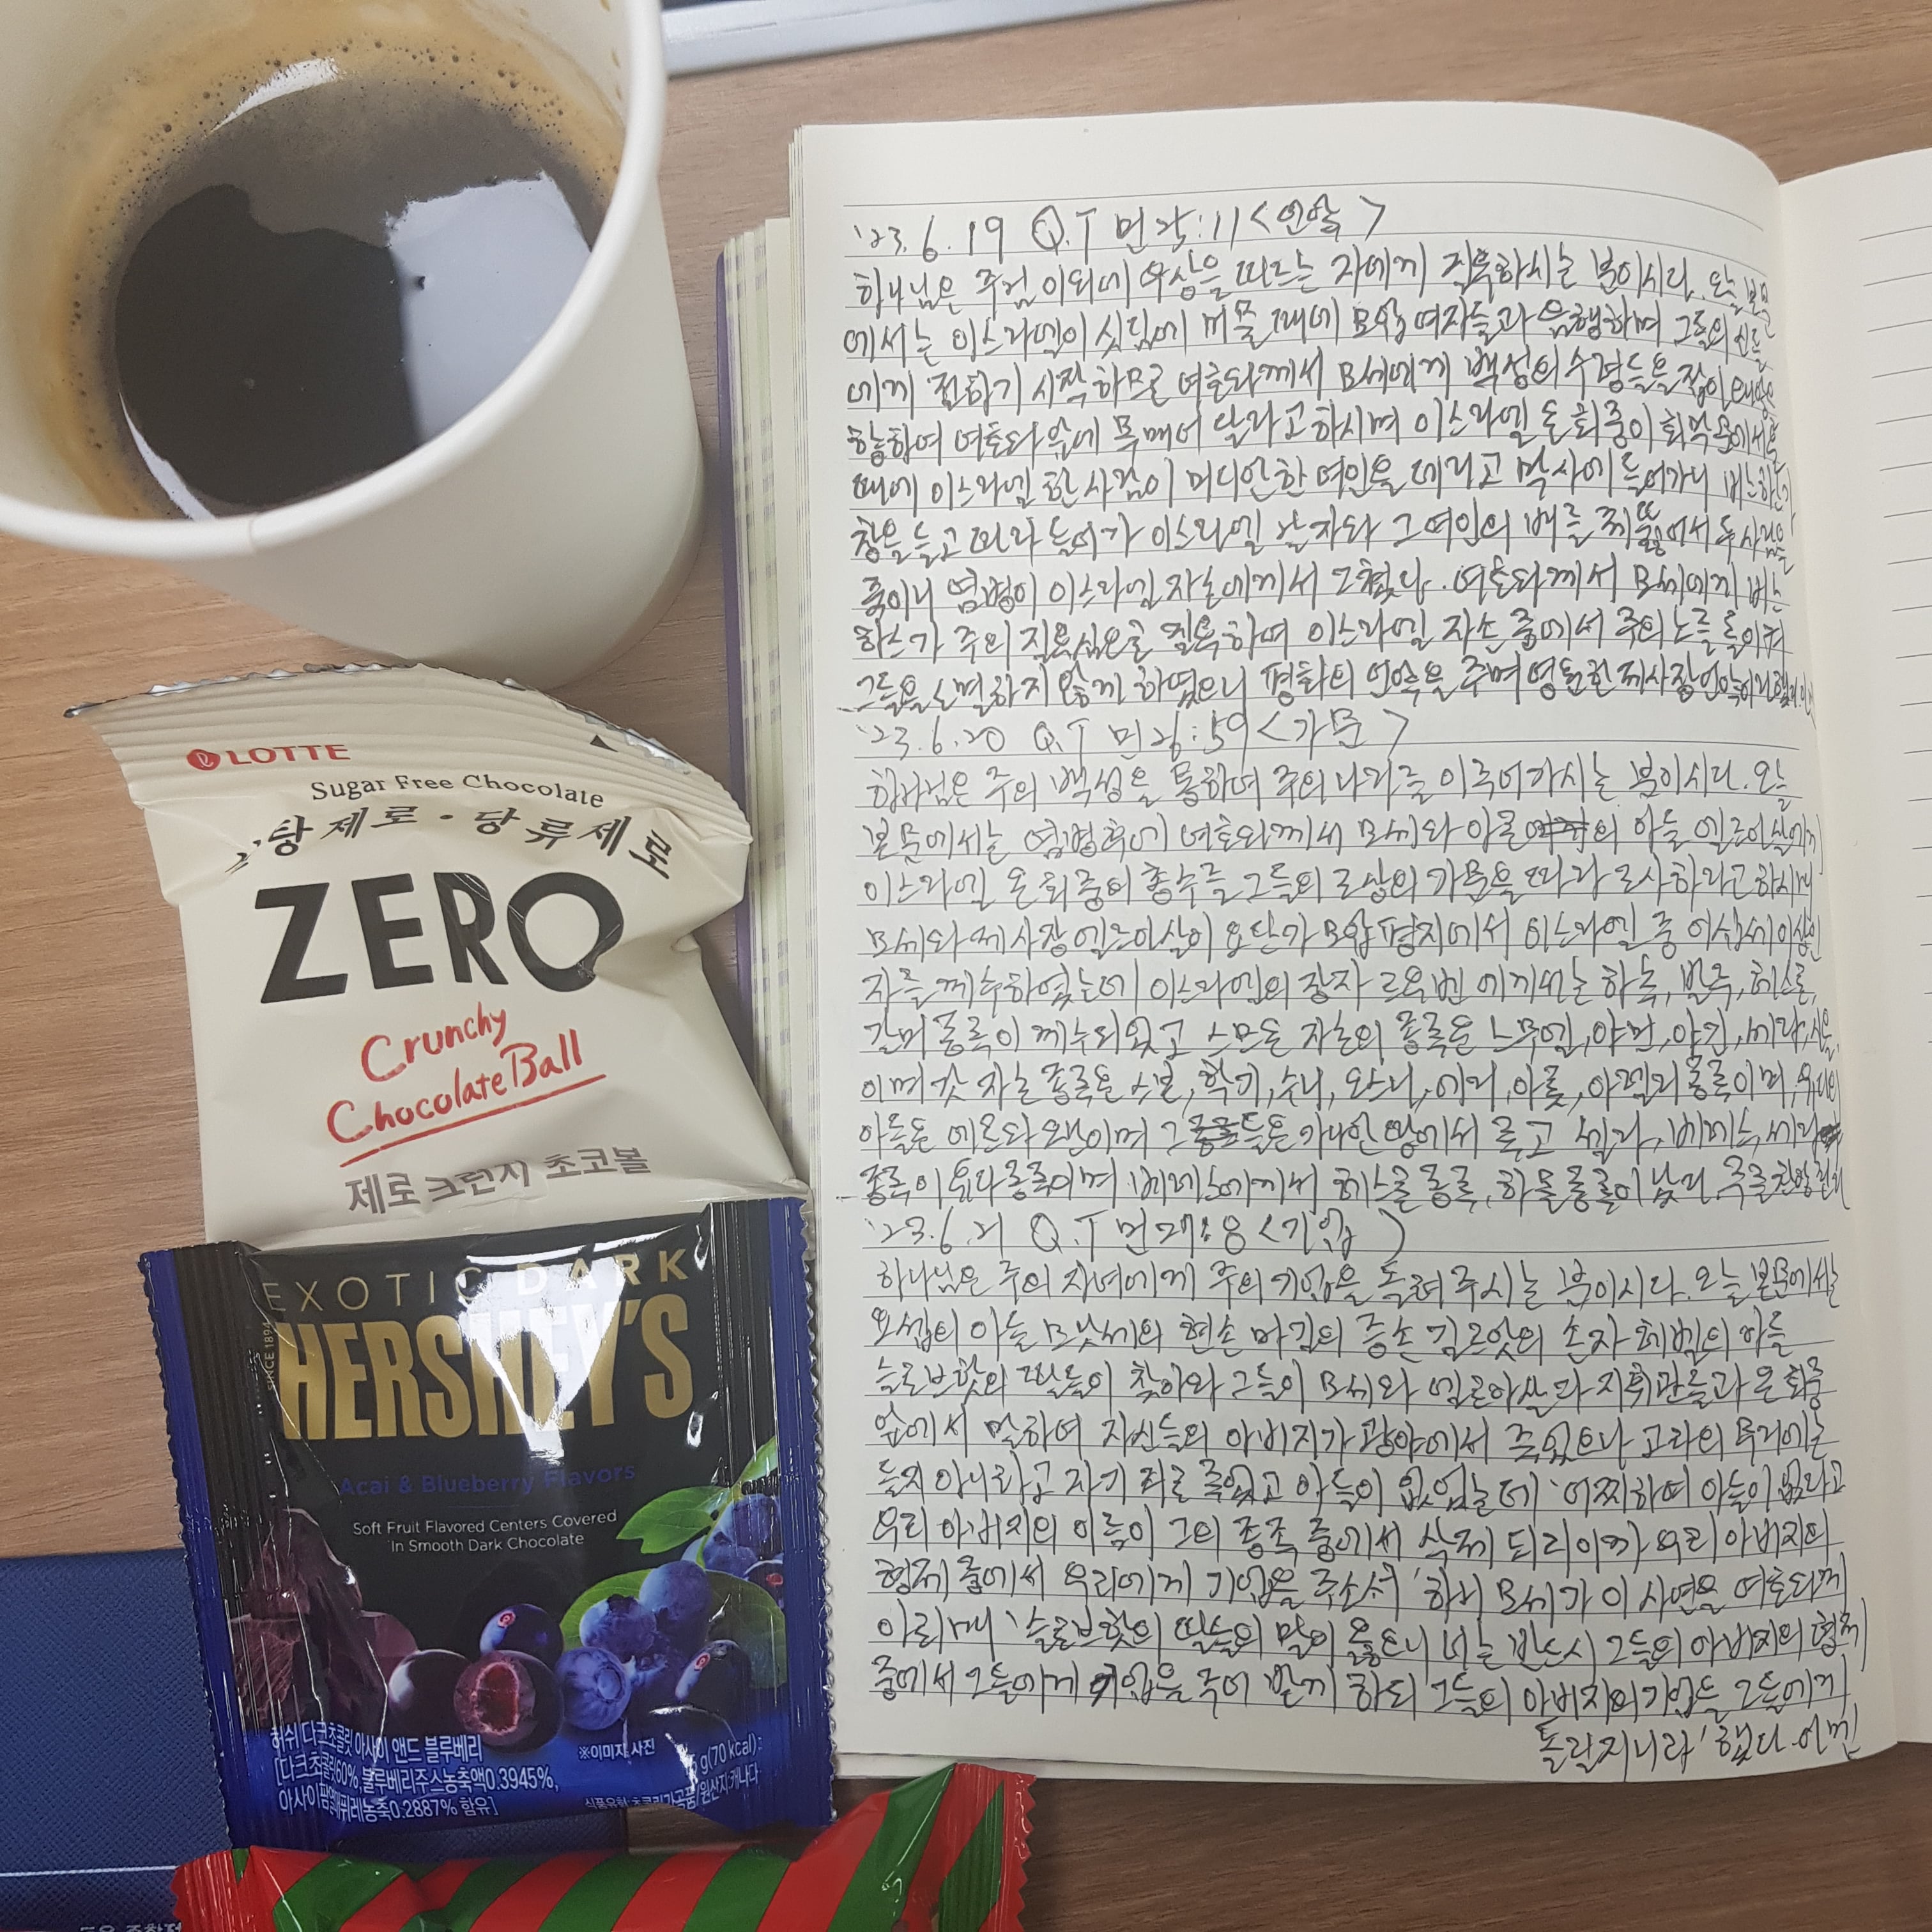 LOTTE
Sugar Free Chocolate
탕 제로 · 당류 제로
ZERO
Crunchy
Chocolate Ball
제로 크런치 초코볼
EXOTIC DARK
SINCE 1894
HERSHEY'S
Acai & Blueberry Flavors
Soft Fruit Flavored Centers Covered
In Smooth Dark Chocolate
허쉬 다크초콜릿 아사이 앤드 블루베리
[다크초콜릿60%, 블루베리주스농축액0.3945%,
아사이팜열매퓌레농축0.2887% 함유]
※이미지 사진
g(70 kcal)
식품유형:초콜릿가공품/원산지:캐나다
'23.6.19 Q.T 민25:11 <언약>
하나님은 주님 이외에 우상을 따르는 자에게 진노하시는 분이시다. 오늘 본문
에서는 이스라엘이 싯딤에 머물 때에 모압 여자들과 음행하며 그들의 신들
에게 절하기 시작하므로 여호와께서 모세에게 백성의 수령들을 잡아 태양을
향하여 여호와 앞에 목매어 달라고 하시며 이스라엘 온 회중이 회막 문에서 울
때에 이스라엘 한 사람이 미디안 한 여인을 데리고 막사에 들어가니 비느하스가
창을 들고 따라 들어가 이스라엘 남자와 그 여인의 배를 찌 뚫어서 두 사람을
죽이니 염병이 이스라엘 자손에게서 그쳤다. 여호와께서 모세에게 비느
하스가 주의 질투심으로 질투하여 이스라엘 자손 중에서 주의 노를 돌이켜
그들을 소멸하지 않게 하였으니 평화의 언약을 주며 영원한 제사장 언약이라
'23.6.20 Q.T 민26:51 <가문>
하나님은 주의 백성을 통하여 주의 나라를 이루어가시는 분이시다. 오늘
본문에서는 염병 후에 여호와께서 모세와 아론의 아들 엘르아살에게
이스라엘 온 회중의 총수를 그들의 조상의 가문을 따라 조사하라고 하시매
모세와 제사장 엘르아살이 요단가 모압 평지에서 이스라엘 중 이십세 이상인
자를 계수하였는데 이스라엘의 장자 르우벤에게서는 하녹, 발루, 헤스론,
갈미 종족이 계수되었고 시므온 자손의 종족은 느무엘, 야민, 야긴, 세라, 사울
이며 갓 자손 종족은 스본, 학기, 수니, 오스니, 에리, 아롯, 아렐리 종족이며, 유다의
아들은 에르와 오난이며 그들은 가나안 땅에서 죽고 셀라, 베레스, 세라
종족이 유다 종족이며 베레스에게서 헤스론 종족, 하물 종족이 났다.
'23.6.21 Q.T 민27:1-8 <기업>
하나님은 주의 자녀에게 주의 기업을 돌려주시는 분이시다. 오늘 본문에서는
요셉의 아들 므낫세의 현손 마길의 증손 길르앗의 손자 헤벨의 아들
슬로브핫의 딸들이 찾아와 그들이 모세와 엘르아살과 지휘관들과 온 회중
앞에서 말하여 자신들의 아버지가 광야에서 죽었으나 고라의 무리에는
들지 아니하고 자기 죄로 죽었고 아들이 없었는데 '어찌하여 아들이 없다고
우리 아버지의 이름이 그의 종족 중에서 삭제 되리이까 우리 아버지의
형제 중에서 우리에게 기업을 주소서' 하니 모세가 이 사연을 여호와께
아뢰매 '슬로브핫의 딸들의 말이 옳으니 너는 반드시 그들의 아버지의 형제
중에서 그들에게 기업을 주어 받게 하되 그들의 아버지의 기업을 그들에게
돌릴지니라' 했다. 아멘